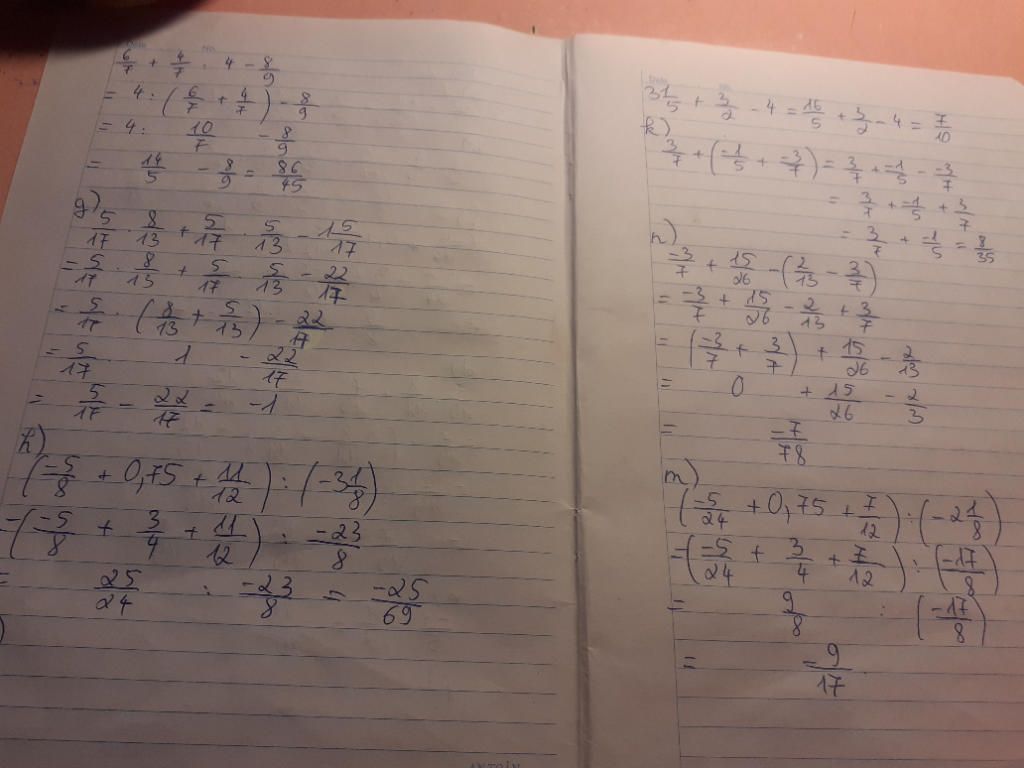 6/7 + 4/7 : 4 - 8/9
= 4 : (6/7 + 4/7) - 8/9
= 4 : 10/7 - 8/9
= 14/5 - 8/9 = 86/45
g)
5/17 . 8/13 + 5/17 . 5/13 - 15/17
= 5/17 . 8/13 + 5/17 . 5/13 - 22/17
= 5/17 . (8/13 + 5/13) - 22/17
= 5/17 1 - 22/17
= 5/17 - 22/17 = -1
h)
(-5/8 + 0,75 + 11/12) : (-3 1/8)
= (-5/8 + 3/4 + 11/12) : -23/8
= 25/24 : -23/8 = -25/69
)
3 1/5 + 3/2 - 4 = 16/5 + 3/2 - 4 = 7/10
k)
3/7 + (-1/5 + -3/7) = 3/7 + -1/5 - -3/7
= 3/7 + -1/5 + 3/7
= 3/7 + -1/5 = 8/35
n)
-3/7 + 15/26 - (2/13 - 3/7)
= -3/7 + 15/26 - 2/13 + 3/7
= (-3/7 + 3/7) + 15/26 - 2/13
= 0 + 15/26 - 2/3
= -7/78
m)
(-5/24 + 0,75 + 7/12) : (-2 1/8)
= (-5/24 + 3/4 + 7/12) : (-17/8)
= 9/8 : (-17/8)
= -9/17